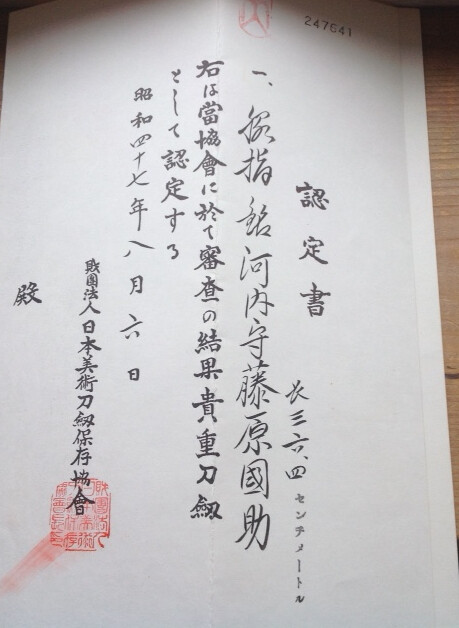 247641
認定書
長三六、四センチメートル
一、脇指 銘 河内守藤原國助
右は當協會に於て審査の結果貴重刀劔
として認定する
昭和四十七年八月六日
財團法人日本美術刀劔保存協會
殿